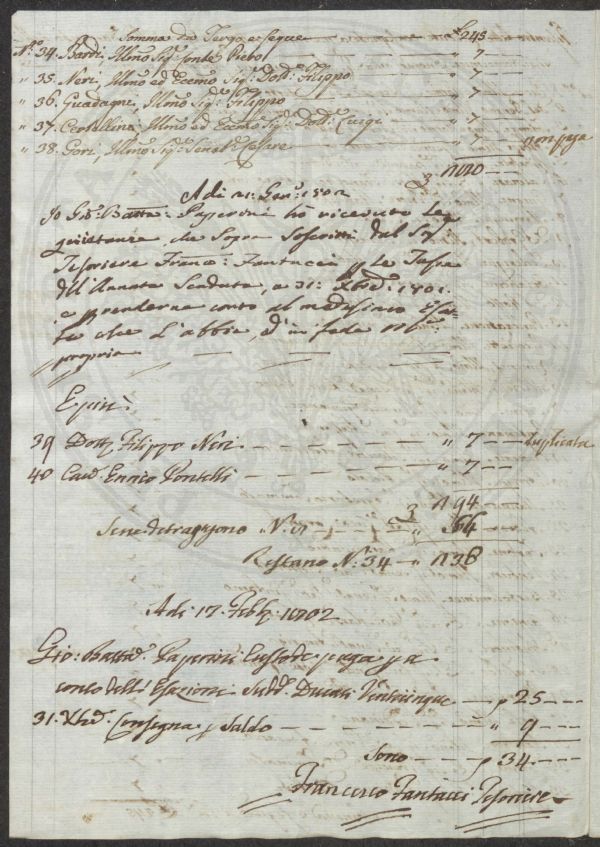 Somma da Tergo e segue — — — £ 245
N.º 34. Bardi, Illmo Sig. Conte — — — " 7 — —
" 35. Neri, Illmo ed Eccmo Sig.: Dott: Filippo — " 7 — —
" 36. Guadagni, Illmo Sig.: Filippo — — " 7 — —
" 37. Cerbellina Illmo ed Eccmo Sig.: Dott: Luigi — " 7 — — non paga
" 38. Gori, Illmo Sig.: Senat.e Cesare — — " 7 — —
A di 21: Gen.: 1802
Io Gio: Batta: Paperini hò ricevuto le
quietanze da Sopra Soscritti dal Sig.
Tesoriere Franc.: Fantacci p le Tasse
dell'Annata Scaduta, a 31: Xbre: 1801.
e prenderne conto al medesimo
che l'abbia, e d'in fede
propria — — —
E più:
39 Dott. Filippo Neri — — — " 7 — — duplicata
40 Cav. Enrico Pontelli — — — " 7 — —
Sene detraggono N.º
Restano N.º 34 — "
Adi 17. Febb. 1802
Gio: Batta. Paperini Custode paga p a
conto dell'Esazioni Sud.e Ducati Venticinque — p 25 — —
31. Xbre. Consegna p Saldo — — — " 9 — —
Sono — p 34. — —
Francesco Fantacci Tesoriere